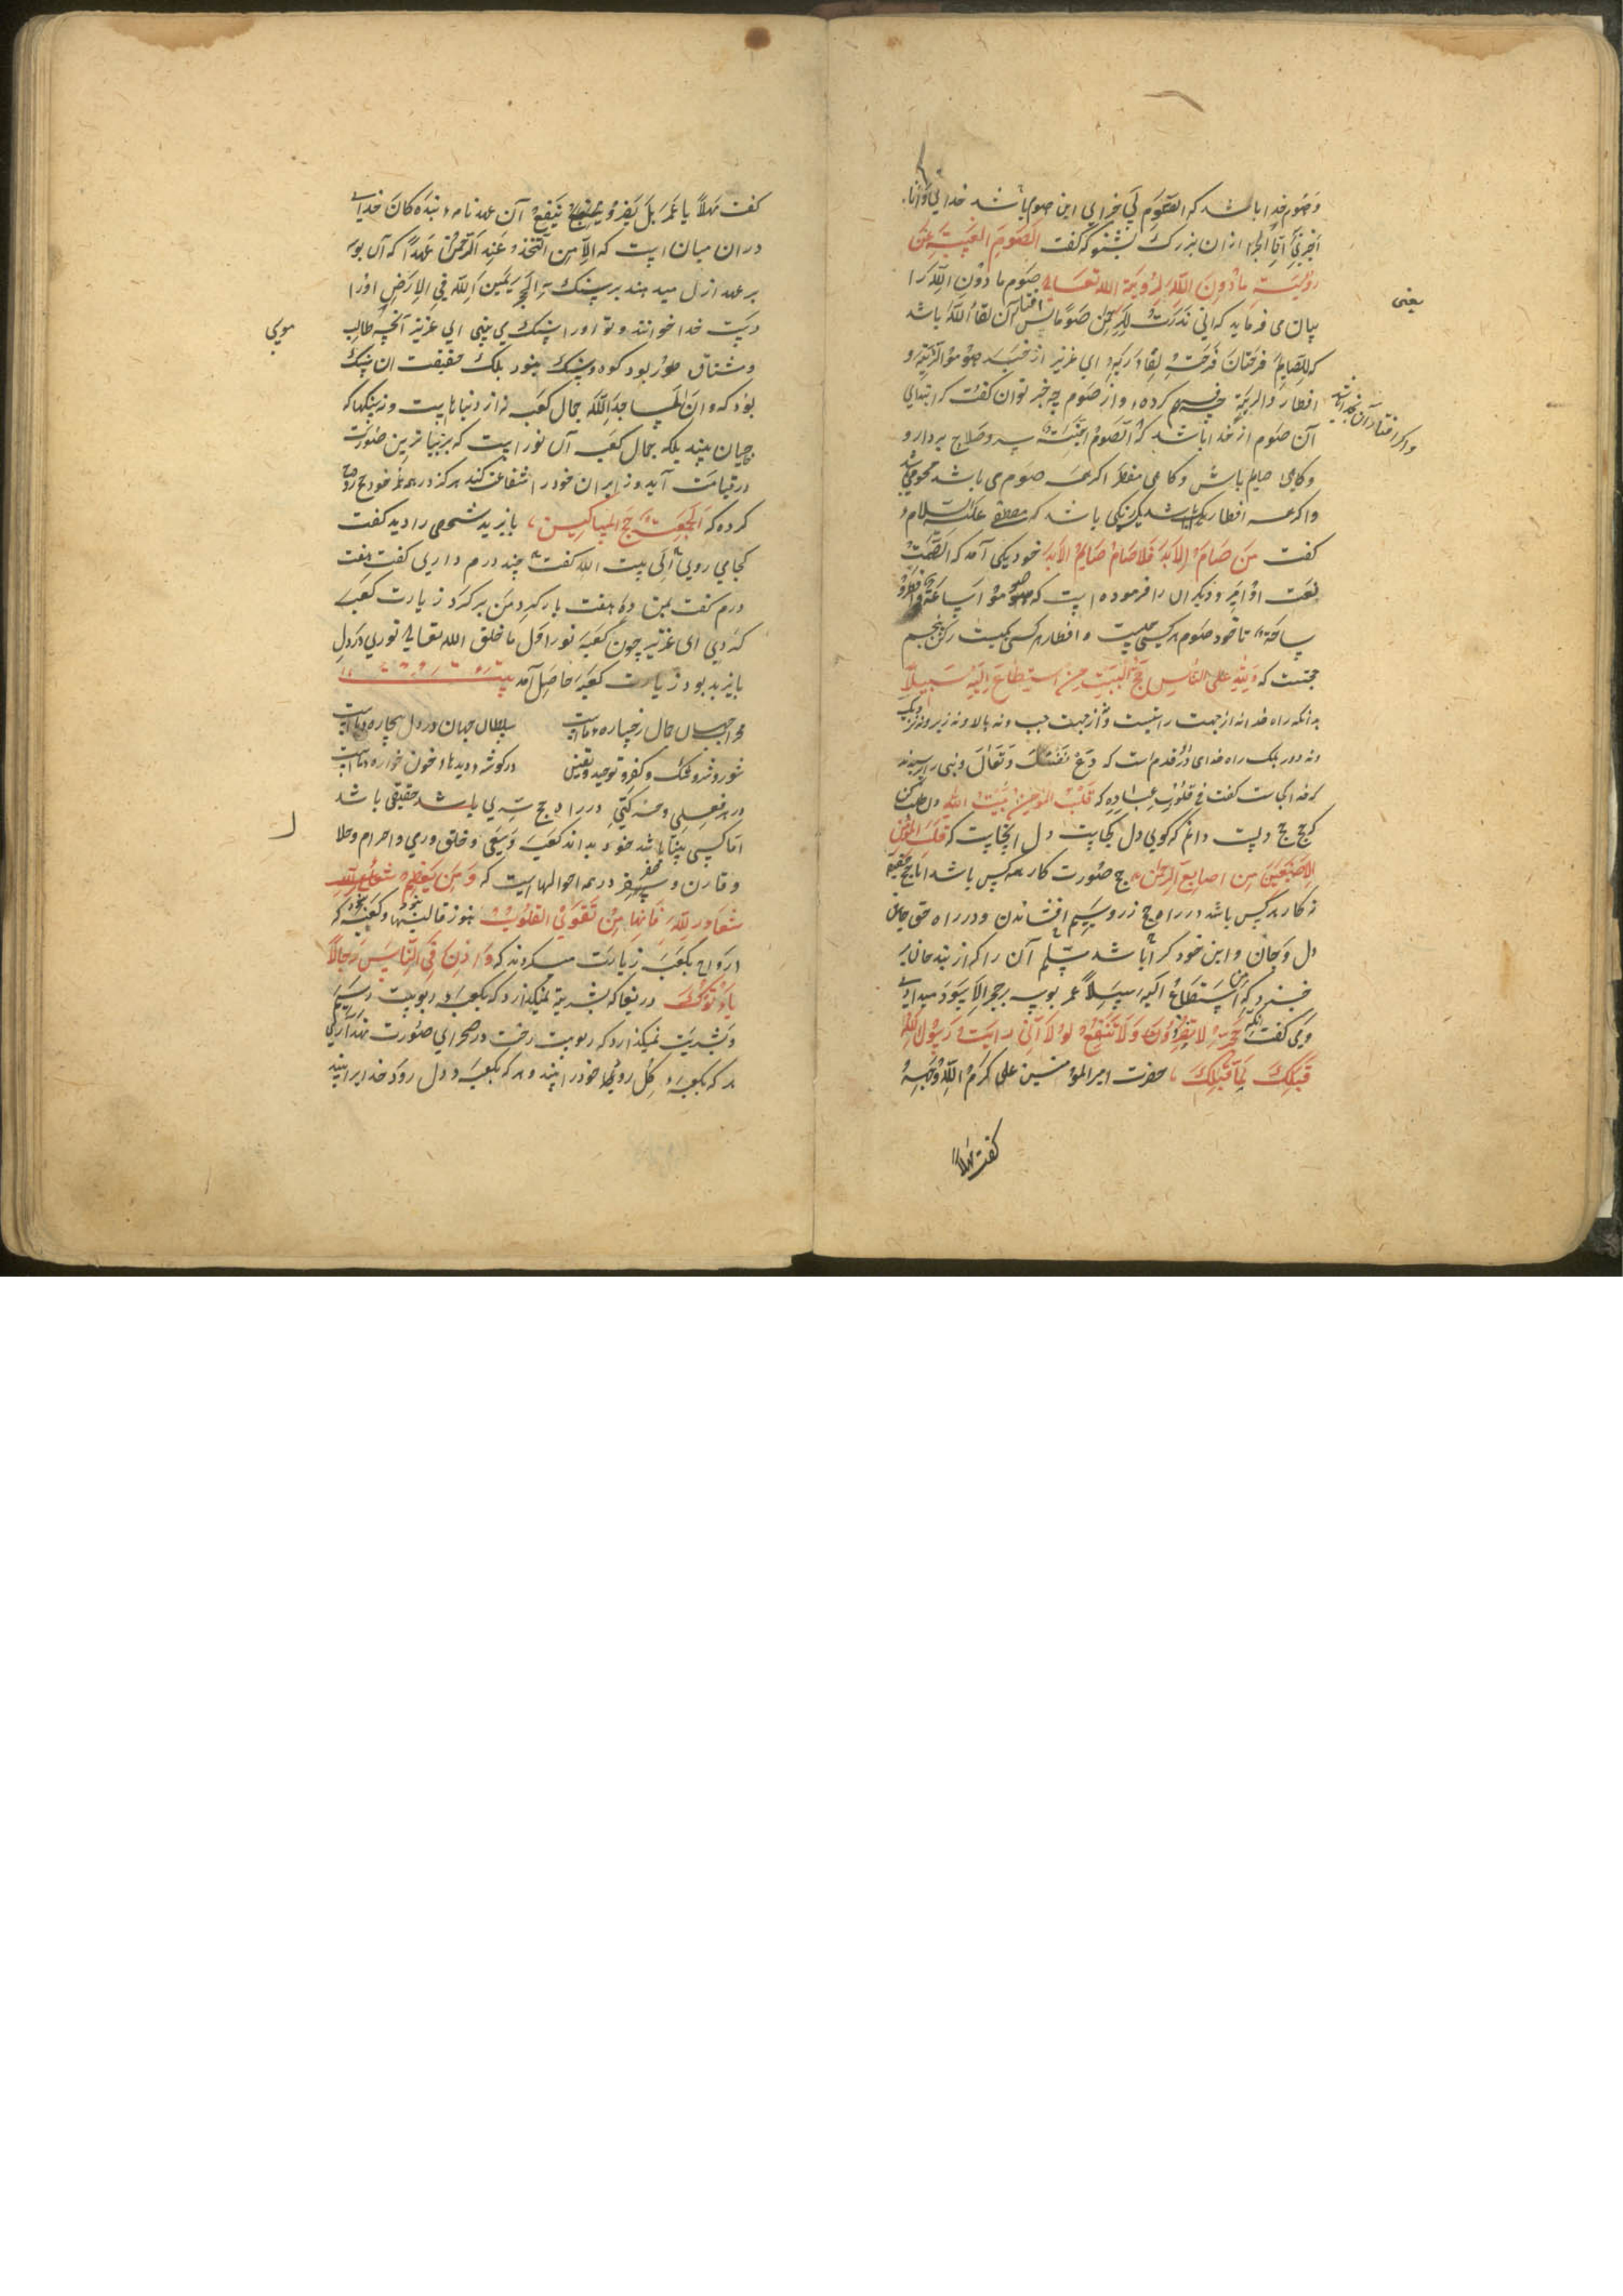 و صوم خدا باشد که الصوم لی خدای این صوم باشد خدایی وانا
اجزی انا الجزا از آن بزرک بشنو که کفت الصوم الغیبة عن
رؤیة ما دون الله لرؤیة الله تعالی صوم ما دون الله را
بیان می فرماید که انی نذرت للرحمن صوما پس افطار آن لقاء الله باشد
یعنی
که للصایم فرحتان فرحة لقاء ربه ای عزیز از خبر صوموا لرؤیته و
افطروا لرؤیته چه فهم کرده و از صوم چه خبر توان کفت که ابتدای
واکر افتاد آن بخدا باشد
آن صوم از خدا باشد که الصوم جنة سپر و صلاح بردار و
و کاهی صایم باش و کاهی مفطر اکر همه صوم می باشد محرومی باشد
و اکر همه افطار باشد یکرنکی باشد که مصطفی علیه السلام
کفت من صام الابد فلا صام صایم الابد خود یکی آمد که الصمد
نعت او آمد و دیکران را فرموده است که صوموا ساعة وافطروا
ساعة تا خود صوم هر کسی چیست و افطار هر کسی چیست رکن پنجم
حجست که ولله علی الناس حج البیت من استطاع الیه سبیلا
بدانکه راه خدا نه از جهت راستست و نه از جهت چپ و نه بالا و نه زیر و نه نزدیک
و نه دور بلک راه خدای در قدم است که دع نفسک و تعال و نبی را پرسیدند
که خدا کجاست کفت فی قلوب عباده که قلب المؤمن بیت الله دل طلب کن
که حج حج دلست دانم که کویی دل کجاست دل انجاست که قلب المؤمن
بین الاصبعین من اصابع الرحمن حج صورت کار همه کس باشد اما حج حقیقة
نه کار هر کس باشد در راه حج زر و سیم افشاندن و در راه حق جان
دل و جان و این خود کرا باشد مسلم آن را که از بند جان بر
خیزد که من استطاع الیه سبیلا عمر بوسه بر حجر الاسود میدادی
و می کفت انک حجر لا تضر و لا تنفع لولا انی رایت رسول الله
قبلک لما قبلتک حضرت امیر المؤمنین علی کرم الله وجهه
کفت مهلا
کفت مهلا یا عمر بل یضر و ینفع آن عهد نامه بندکان خدای
در آن میان است که الا من اتخذ عند الرحمن عهدا که آن بوسه
بر عهد ازل میدهند بر سنک الحجر یمین الله فی الارض او را
دست خدا خوانند و تو او را سنک می بینی ای عزیز آنچه طالب
موسی
و مشتاق طور بود کوه و سنک نبود بلک حقیقت آن سنک
بود که وان المساجد لله جمال کعبه نه از دیوارهاست و نه سنکها که
حاجیان بینند بلکه جمال کعبه آن نور است که بزیباترین صورت
در قیامت آید و زایران خود را شفاعت کند هرکز در عمر خود حج روح
کرده که الجمعة حج المساکین بایزید شخصی را دید کفت
کجا می روی الی بیت الله کفت چند درم داری کفت هفت
درم کفت بمن ده و هفت بار کرد من بر کرد زیارت کعبه
کردی ای عزیز چون کعبه نور اول ما خلق الله تعالی نوری در دل
بایزید بود زیارت کعبه حاصل آمد بیت
محراب جهان جمال رخساره ماست سلطان جهان در دل بیچاره ماست
شور و شر و شک و کفر و توحید و یقین در کوشه دیدها و خون خواره ماست
در هر فعلی و حرکتی در راه حج سری باشد حقیقی باشد
اما کسی بینا باشد خود بداند کعبه و سعی و حلق و رمی و احرام و حلا
ل
و قارن و مفرد در همه احوالهاست که و من یعظم شعایر الله
فانها من تقوی القلوب هنوز قالبها نبود و کعبه نبود که
ارواح بکعبه زیارت میکردند که و اذن فی الناس بالحج یاتوک رجالا
دریغا که بشریة نمیکذارد که بکعبه ربوبیت رسیم
و بشریت نمیکذارد که ربوبیت رخت در صحرای صورت نهد
هر که بکعبه کل رود خود را بیند و هر که بکعبه دل رود خدا را بیند